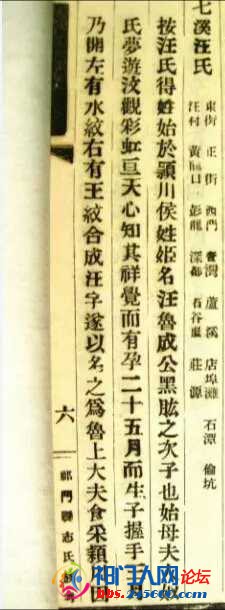 七溪汪氏
東街 正街 西門 蘆溪 店埠灘 石潭 倫坑
汪村 黃 口 彭龍 深都 石谷里 莊源
按汪氏得姓始於潁川侯姓姬名汪魯成公黑肱之次子也始母夫
氏夢遊汶觀彩虹亘天心知其祥覺而有孕二十五月而生子握手
乃開左有水紋右有王紋合成汪字遂以名之爲魯上大夫食采潁
六
祁門縣志氏族
祁门人网论坛
bbs.245600.com